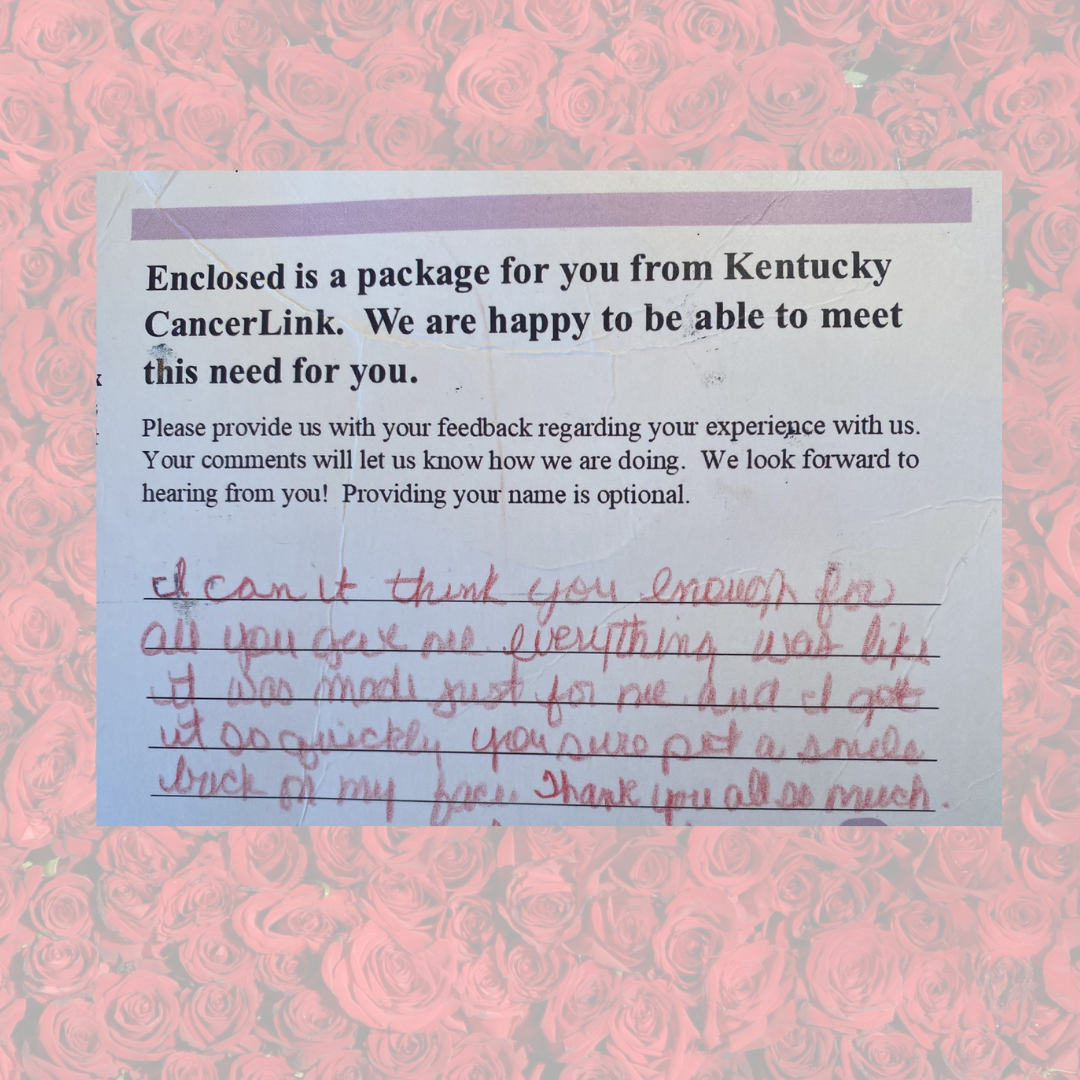 Enclosed is a package for you from Kentucky
CancerLink. We are happy to be able to meet
this need for you.
Please provide us with your feedback regarding your experience with us.
Your comments will let us know how we are doing. We look forward to
hearing from you! Providing your name is optional.
I can it think you enough for
all you gave me everything was like
it was made just for me and I got
it so quickly you sure put a smile
back on my face. Thank you all so much.